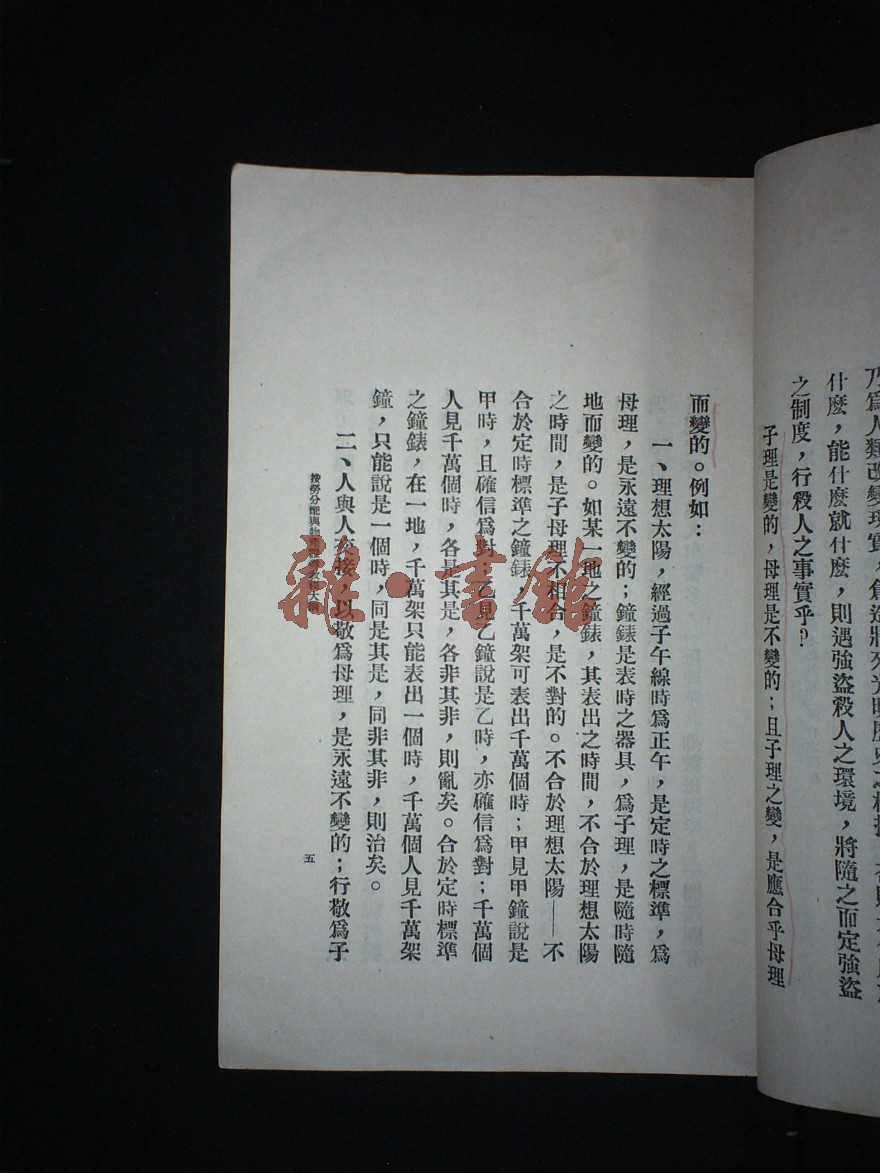 什麼，能什麼就什麼，則遇強盜殺人之環境，將隨之而定強盜
之制度，行殺人之事實乎？
子理是變的，母理是不變的；且子理之變，是應合乎母理
而變的。例如：
一、理想太陽，經過子午線時爲正午，是定時之標準，爲
母理，是永遠不變的；鐘錶是表時之器具，爲子理，是隨時隨
地而變的。如某一地之鐘錶，其表出之時間，不合於理想太陽
之時間，是子母理不相合，是不對的。不合於理想太陽——不
合於定時標準之鐘錶，千萬架可表出千萬個時；甲見甲鐘說是
甲時，且確信爲對；乙見乙鐘說是乙時，亦確信爲對；千萬個
人見千萬個時，各是其是，各非其非，則亂矣。合於定時標準
之鐘錶，在一地，千萬架只能表出一個時，千萬個人見千萬架
鐘，只能說是一個時，同是其是，同非其非，則治矣。
二、人與人交接，以敬爲母理，是永遠不變的；行敬爲子
按勞分配與物產證券
五
雜·書館